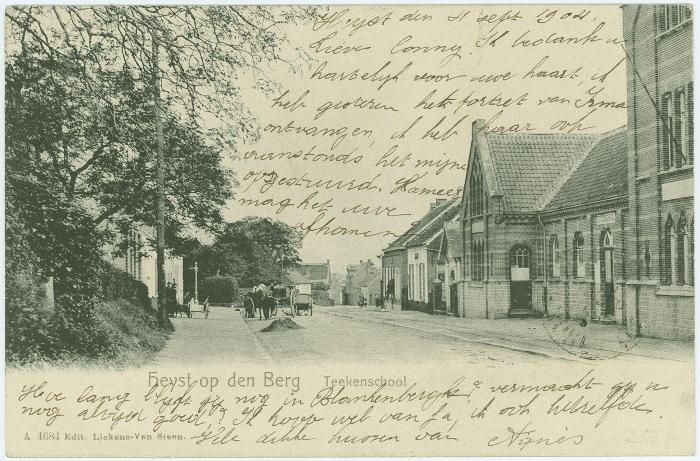 Heyst den 11 sept 1904.
Lieve Conny. Ik bedank u
hartelijk voor uwe kaart, ik
heb gisteren het portret van Irma
ontvangen, ik heb haar ook
het mijne
opgestuurd.
mag het uwe
afkomen
Heyst op den Berg Teekenschool
Hoe lang blijft gij nog in Blankenberghe? vermaakt gij u
nog altijd goed? Ik hoop wel van Ja, ik ook hetzelfde.
Vele dikke kussen van Agnès
A 4684 Edit. Liekens-Van Steen.